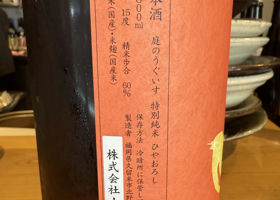 本酒
庭のうぐいす 特別純米 ひやおろし
保存方法 冷暗所に保管し
製造者 福岡県久留米市北野
15度 精米歩合 60%
米(国産)・米麹(国産米)
株式会社